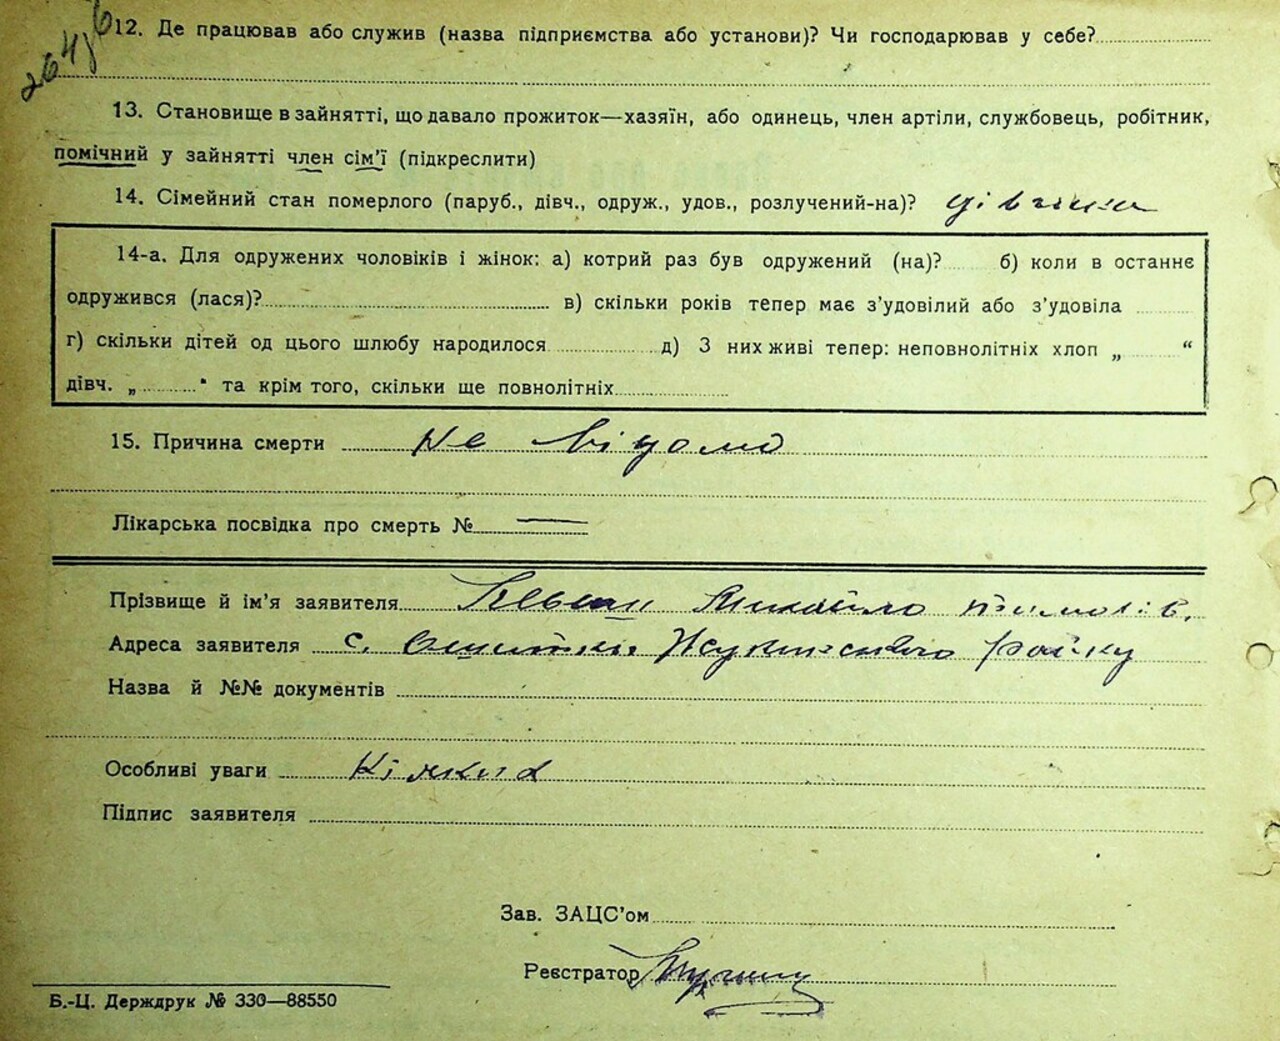 12. Де працював або служив (назва підприємства або установи)? Чи господарював у себе?
13. Становище в зайнятті, що давало прожиток—хазяїн, або одинець, член артіли, службовець, робітник,
помічний у зайнятті член сім'ї (підкреслити)
14. Сімейний стан померлого (паруб., дівч., одруж., удов., розлучений-на)? дівчина
14-а. Для одружених чоловіків і жінок: а) котрий раз був одружений (на)? б) коли в останнє
одружився (лася)? в) скільки років тепер має з'удовілий або з'удовіла
г) скільки дітей од цього шлюбу народилося д) З них живі тепер: неповнолітніх хлоп „ “
дівч. „ “ та крім того, скільки ще повнолітніх
15. Причина смерти не відомо
Лікарська посвідка про смерть № —
Прізвище й ім'я заявителя Михайло
Адреса заявителя с. району
Назва й №№ документів
Особливі уваги
Підпис заявителя
Зав. ЗАЦС'ом
Реєстратор
Б.-Ц. Держдрук № 330—88550